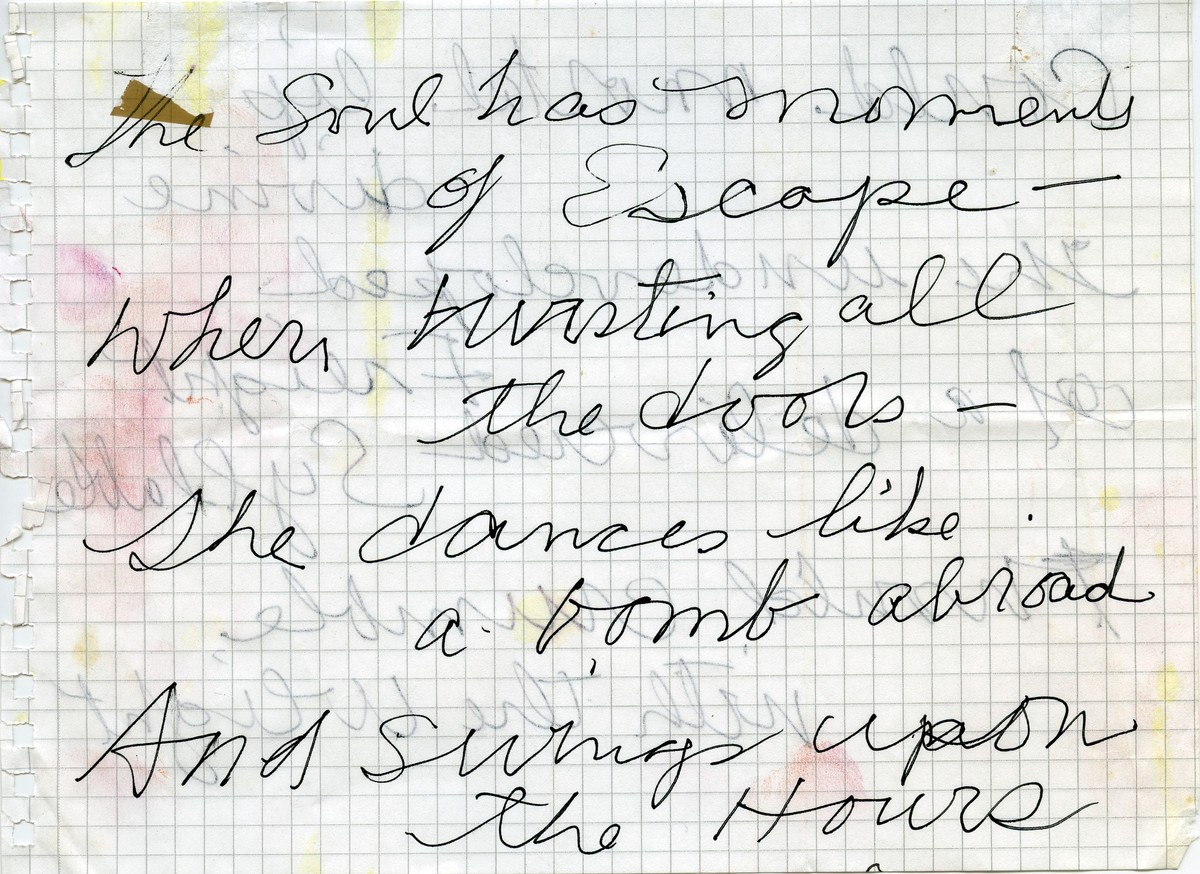 The Soul has moments
of Escape —
When bursting all
the doors —
She dances like
a bomb abroad
And swings upon
the Hours